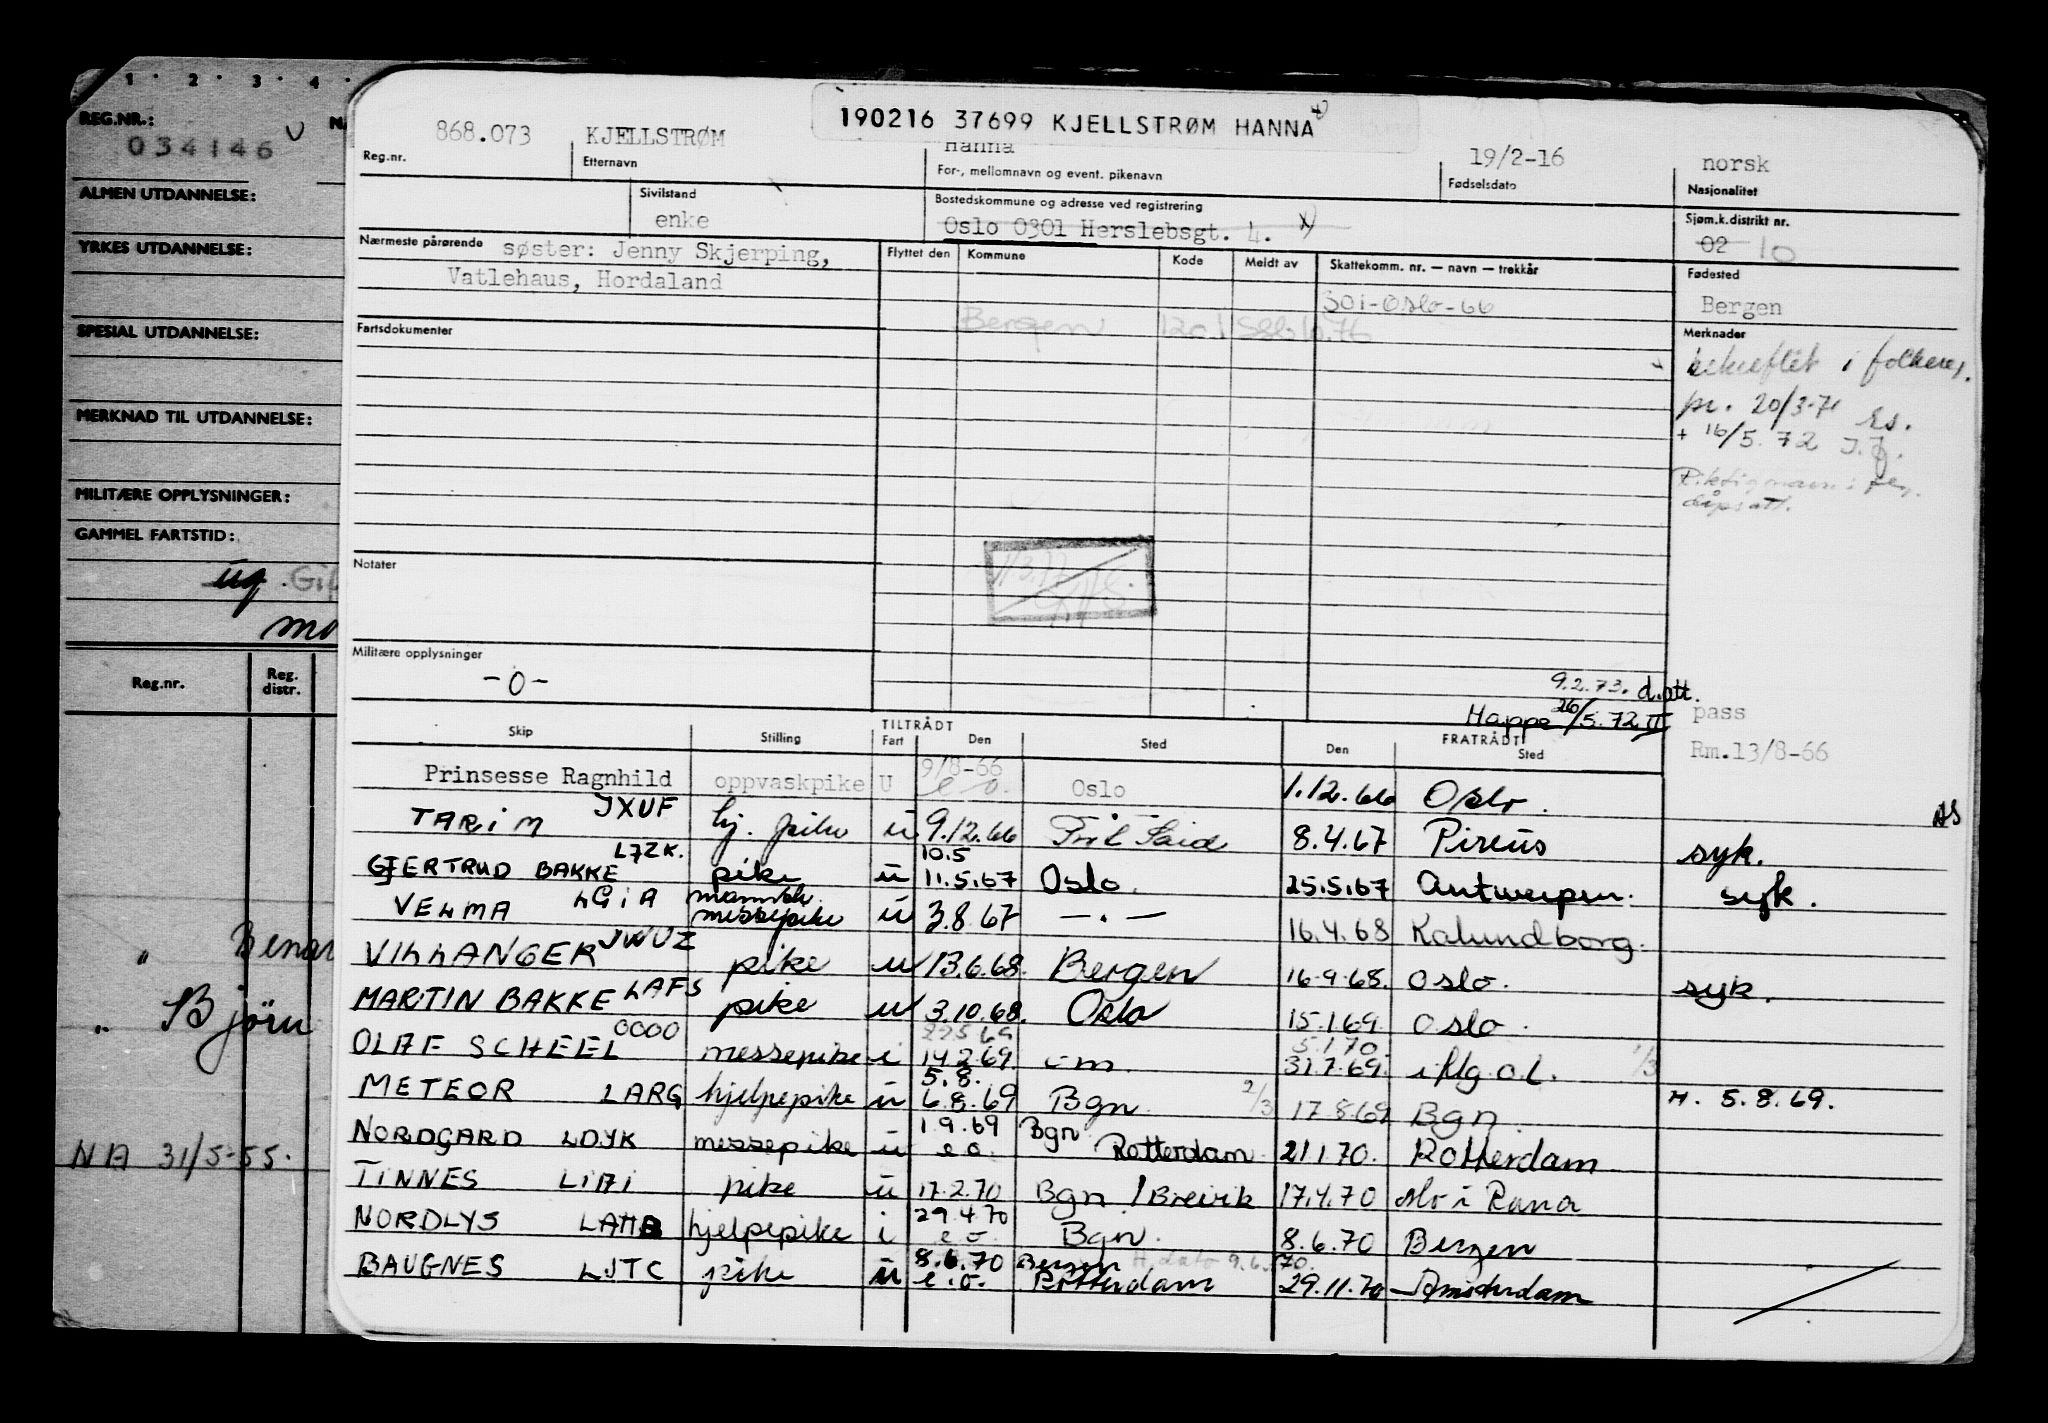 1 · 2 · 3 · 4 ·
REG.NR.:
034146
ALMEN UTDANNELSE:
YRKES UTDANNELSE:
SPESIAL UTDANNELSE:
MERKNAD TIL UTDANNELSE:
MILITÆRE OPPLYSNINGER:
GAMMEL FARTSTID:
ug.
Reg.nr.
Reg. distr.
Bjørn
NA 31/5-55.
190216 37699 KJELLSTRØM HANNA
868.073 KJELLSTRØM Hanna 19/2-16 norsk
Reg.nr. Etternavn For-, mellomnavn og event. pikenavn Fødselsdato Nasjonalitet
Sivilstand Bostedskommune og adresse ved registrering Sjøm.k.distrikt nr.
enke Oslo 0301 Herslebsgt. 4. x) 02 10
Nærmeste pårørende søster: Jenny Skjerping,
Vatlehaus, Hordaland
Flyttet den Kommune Kode Meldt av Skattekomm. nr. — navn — trekkår Fødested
301-Oslo-66 Bergen
Bergen 1201
Fartsdokumenter
Merknader
bekreftet i folkereg.
pr. 20/3-71 Es.
+ 16/5.72
dåpsatt.
Notater
Militære opplysninger
-0-
9.2.73. d.att.
Happe 26/5.72 II
pass
Rm.13/8-66
Skip Stilling TILTRÅDT Fart Den Sted FRATRÅDT Den Sted
Prinsesse Ragnhild oppvaskpike U 9/8-66 e o. Oslo 1.12.66 Oslo.
TARIM JXUF hj. pike u 9.12.66 Port Said 8.4.67 Pireus syk.
GJERTRUD BAKKE LJZK. pike u 10.5 11.5.67 Oslo. 25.5.67 Antwerpen. syk.
VELMA LGIA mannsk. messepike u 3.8.67 — . — 16.4.68 Kalundborg.
VILLANGER JWUZ pike u 13.6.68. Bergen 16.9.68. Oslo. syk.
MARTIN BAKKE LAFS pike u 3.10.68. Oslo 15.1.69. Oslo.
OLAF SCHEEL OOOO messepike i 14.2.69. 31.7.69. 1/3
METEOR LARG hjelpepike u 5.8. 6.8.69 Bgn. 2/3 17.8.69 Bgn. H. 5.8.69.
NORDGARD LDYK messepike u 1.9.69 e o. Bgn Rotterdam 21.1.70. Rotterdam
TINNES LIAI pike u 17.2.70 Bgn / Brevik 17.4.70 Mo i Rana
NORDLYS LAHB hjelpepike i 29.4.70 e o. Bgn. 8.6.70 Bergen
BAUGNES LJTC pike u 8.6.70 e.o. Bergen Rotterdam H. dato 9.6.70. 29.11.70 Amsterdam